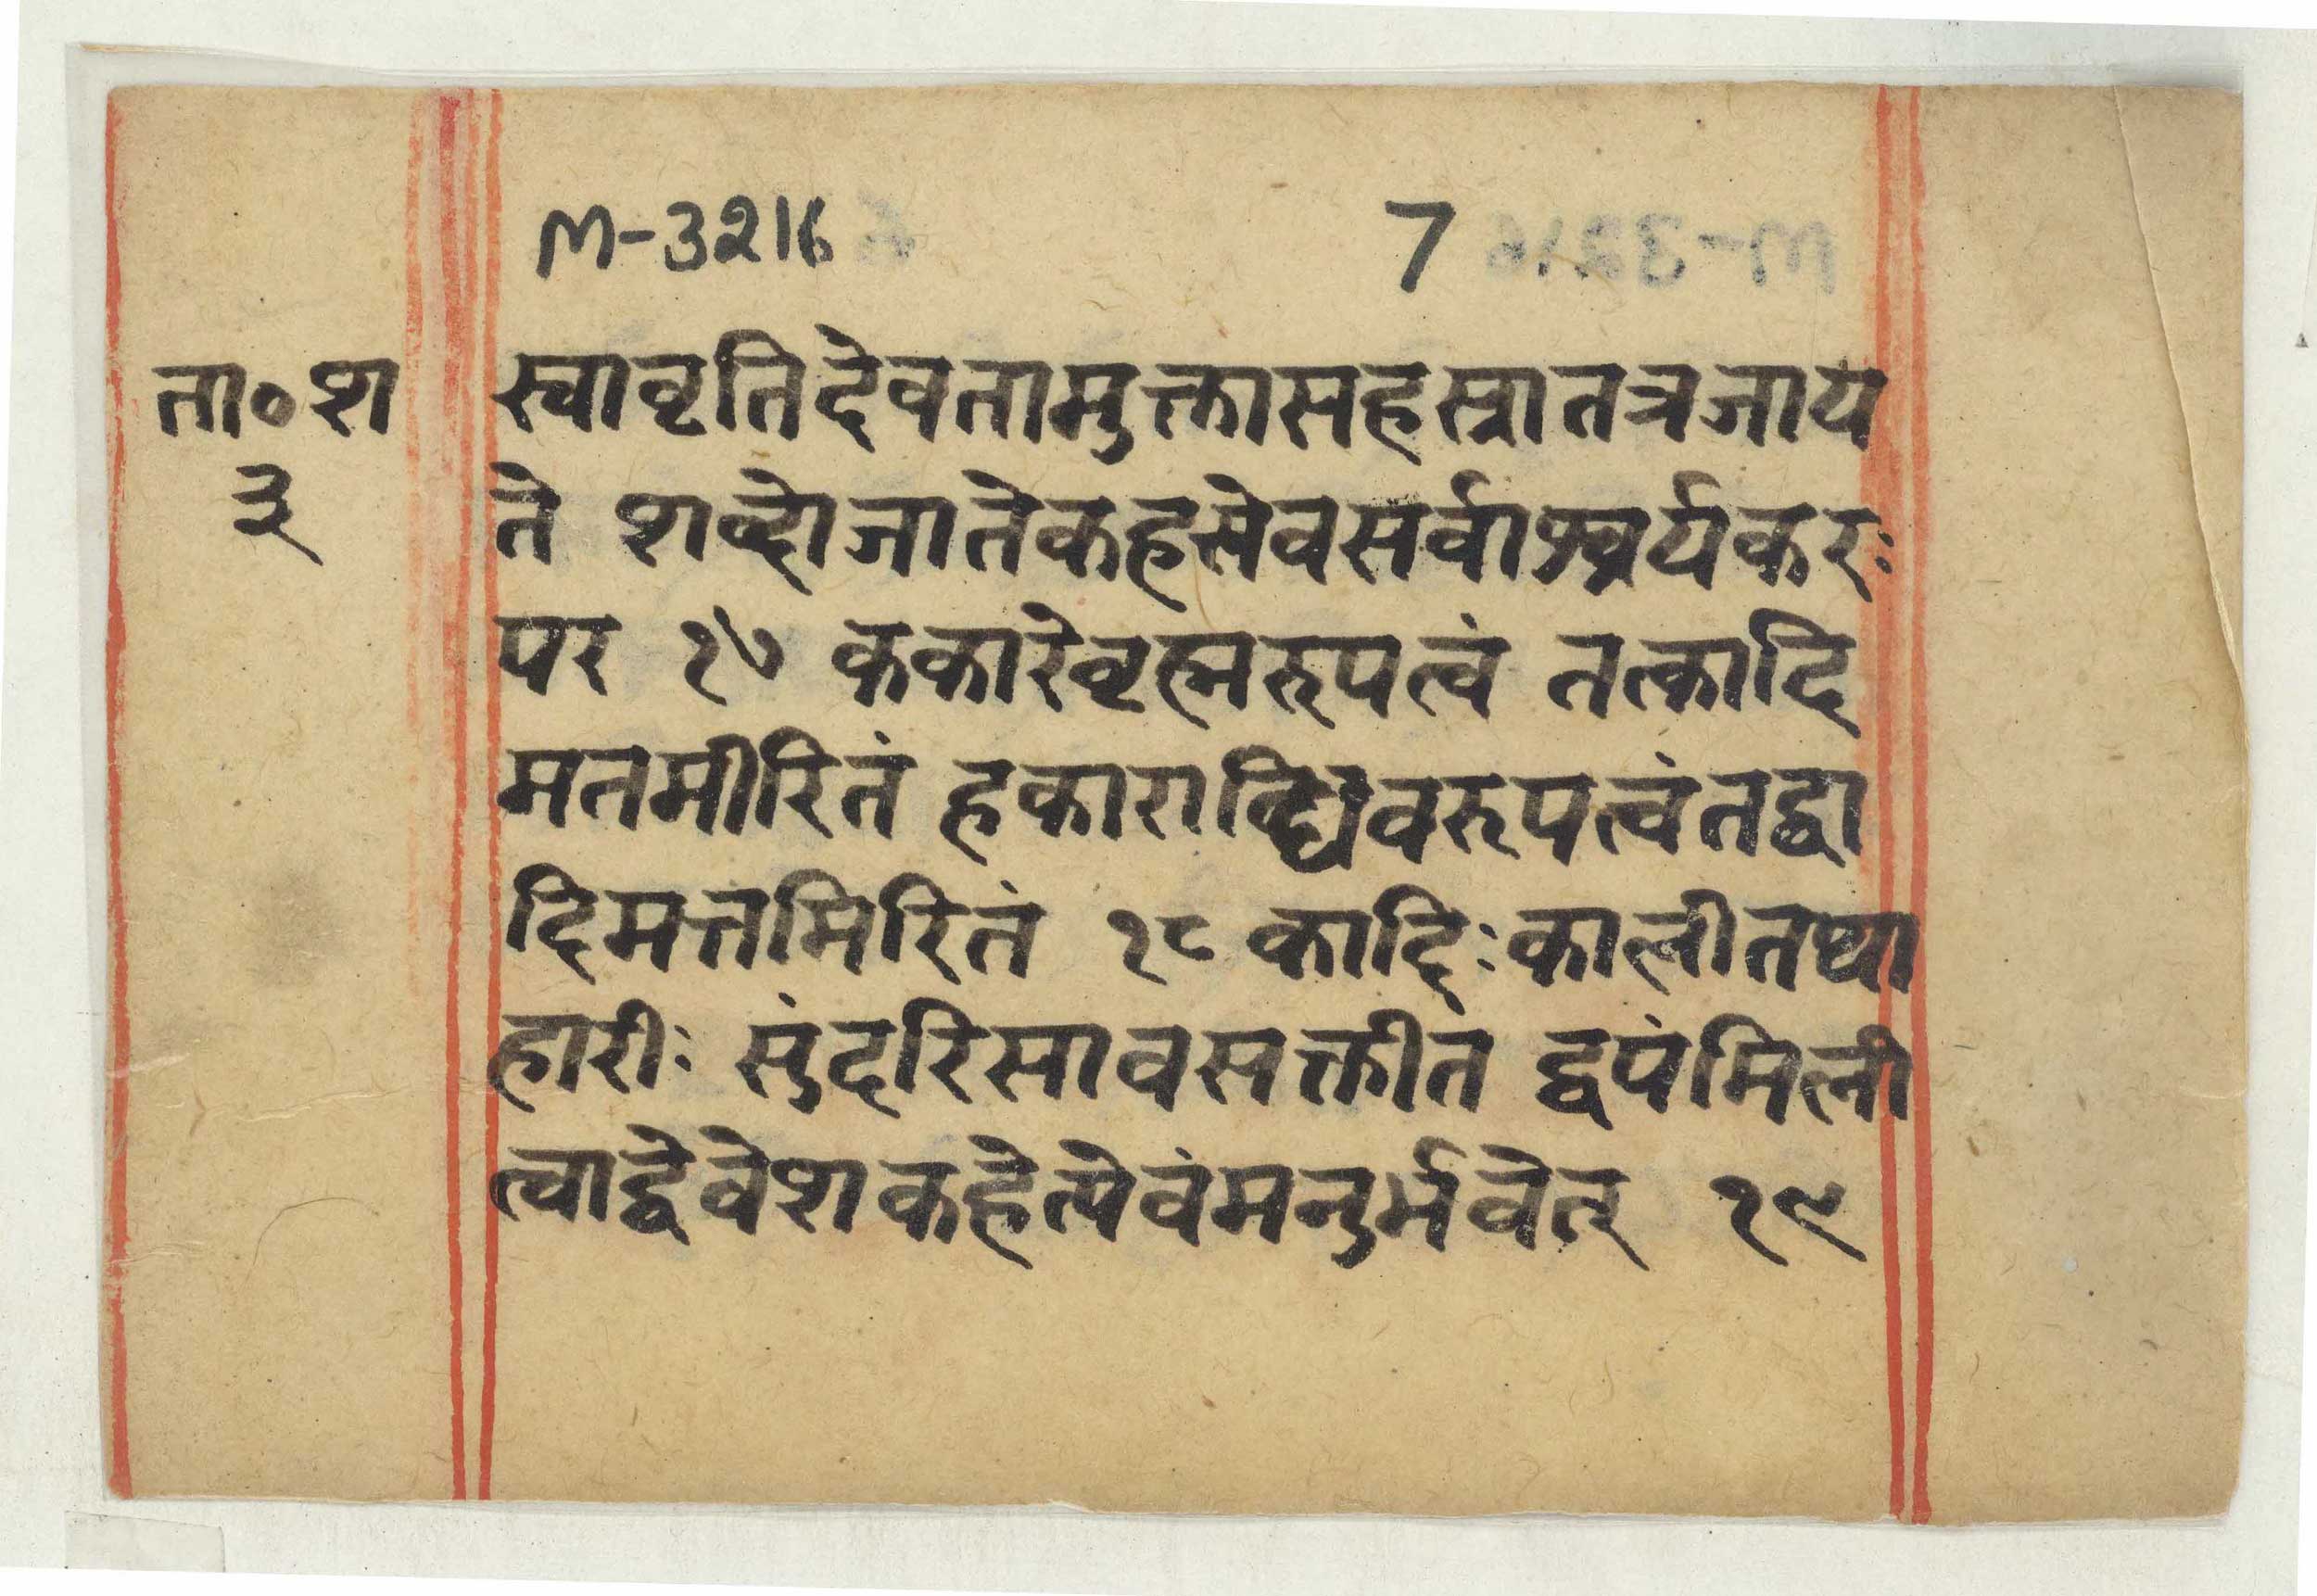 M-3216 7
ता०श
३
स्वावृतिदेवतामुक्तासहस्रातत्रजाय
ते शब्दोजातेकहसेवसर्वाश्चर्यकरः
पर १७ ककारेवृह्मरुपत्वं तत्कादि
मतमीरितं हकाराच्छिवरुपत्वंतद्धा
दिमत्तमिरितं १८ कादिःकालीतथा
हारीः सुंदरिसावसक्तीत द्वपंमिली
त्वाद्देवेशकहेत्येवंमनुर्भवेत् १९